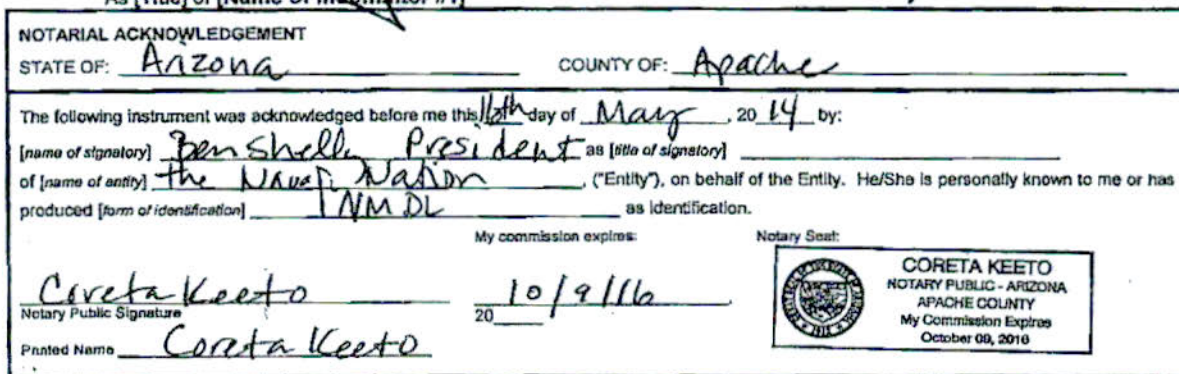 As [Title] of [Name of Indemnitor #1]
NOTARIAL ACKNOWLEDGEMENT
STATE OF: Arizona COUNTY OF: Apache
The following instrument was acknowledged before me this 16th day of May, 2014 by:
[name of signatory] Ben Shelly President as [title of signatory]
of [name of entity] the Navajo Nation, ("Entity"), on behalf of the Entity. He/She is personally known to me or has
produced [form of identification] NMDL as identification.
My commission expires: Notary Seal:
Coreta Keeto 10/9/16
Notary Public Signature 20
Printed Name Coreta Keeto
CORETA KEETO
NOTARY PUBLIC - ARIZONA
APACHE COUNTY
My Commission Expires
October 09, 2016